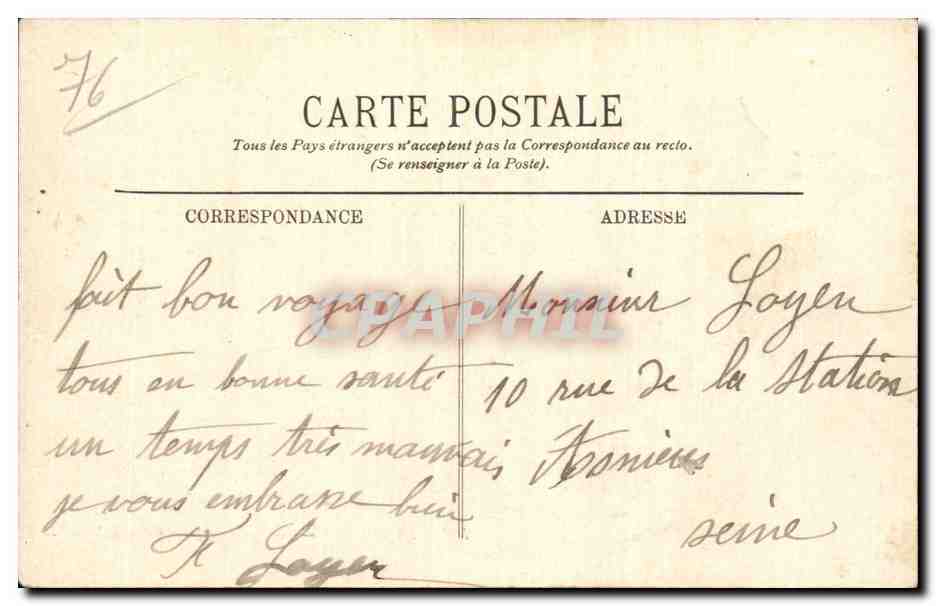 76
CARTE POSTALE
Tous les Pays étrangers n'acceptent pas la Correspondance au recto.
(Se renseigner à la Poste).
CORRESPONDANCE
fait bon voyage
tous en bonne santé
un temps très mauvais
je vous embrasse bien
Loyen
ADRESSE
Monsieur Loyen
10 rue de la Station
Asnières
Seine
CPAPHIL